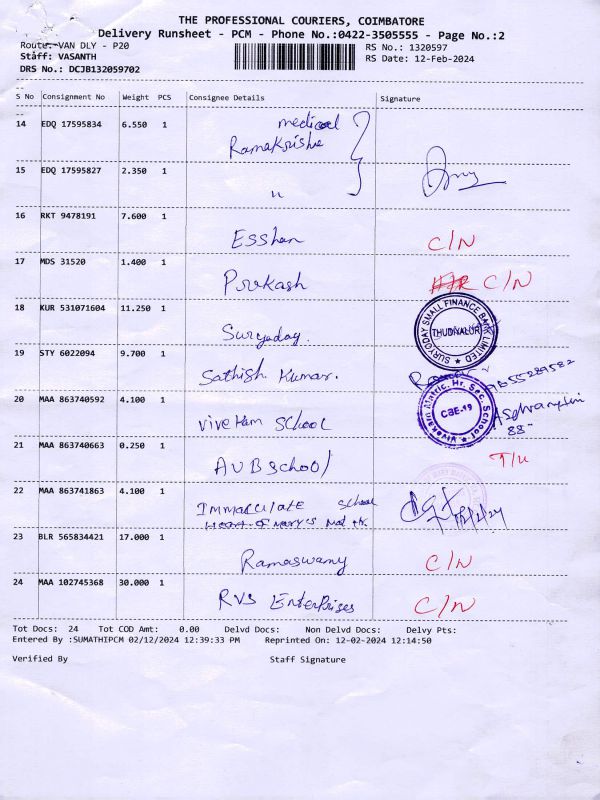 THE PROFESSIONAL COURIERS, COIMBATORE
Delivery Runsheet - PCM - Phone No.:0422-3505555 - Page No.:2
Route: VAN DLY - P20 RS No.: 1320597
Staff: VASANTH RS Date: 12-Feb-2024
DRS No.: DCJB132059702
S No Consignment No Weight PCS Consignee Details Signature
14 EDQ 17595834 6.550 1 medical
Ramakrishna
15 EDQ 17595827 2.350 1 "
16 RKT 9478191 7.600 1 Esshan C/N
17 MDS 31520 1.400 1 Prakash C/N
18 KUR 531071604 11.250 1 Suryoday. SURYODAY SMALL FINANCE BANK LIMITED THUDIYALUR
19 STY 6022094 9.700 1 Sathish Kumar.
20 MAA 863740592 4.100 1 vivekam school Vivekam Matric. Hr. Sec. School CBE-19
21 MAA 863740663 0.250 1 AVB school T/U
22 MAA 863741863 4.100 1 Immaculate school
Heart of Mary's Mat Hr.
23 BLR 565834421 17.000 1 Ramaswamy C/N
24 MAA 102745368 30.000 1 RVS Enterprises C/N
Tot Docs: 24 Tot COD Amt: 0.00 Delvd Docs: Non Delvd Docs: Delvy Pts:
Entered By :SUMATHIPCM 02/12/2024 12:39:33 PM Reprinted On: 12-02-2024 12:14:50
Verified By Staff Signature